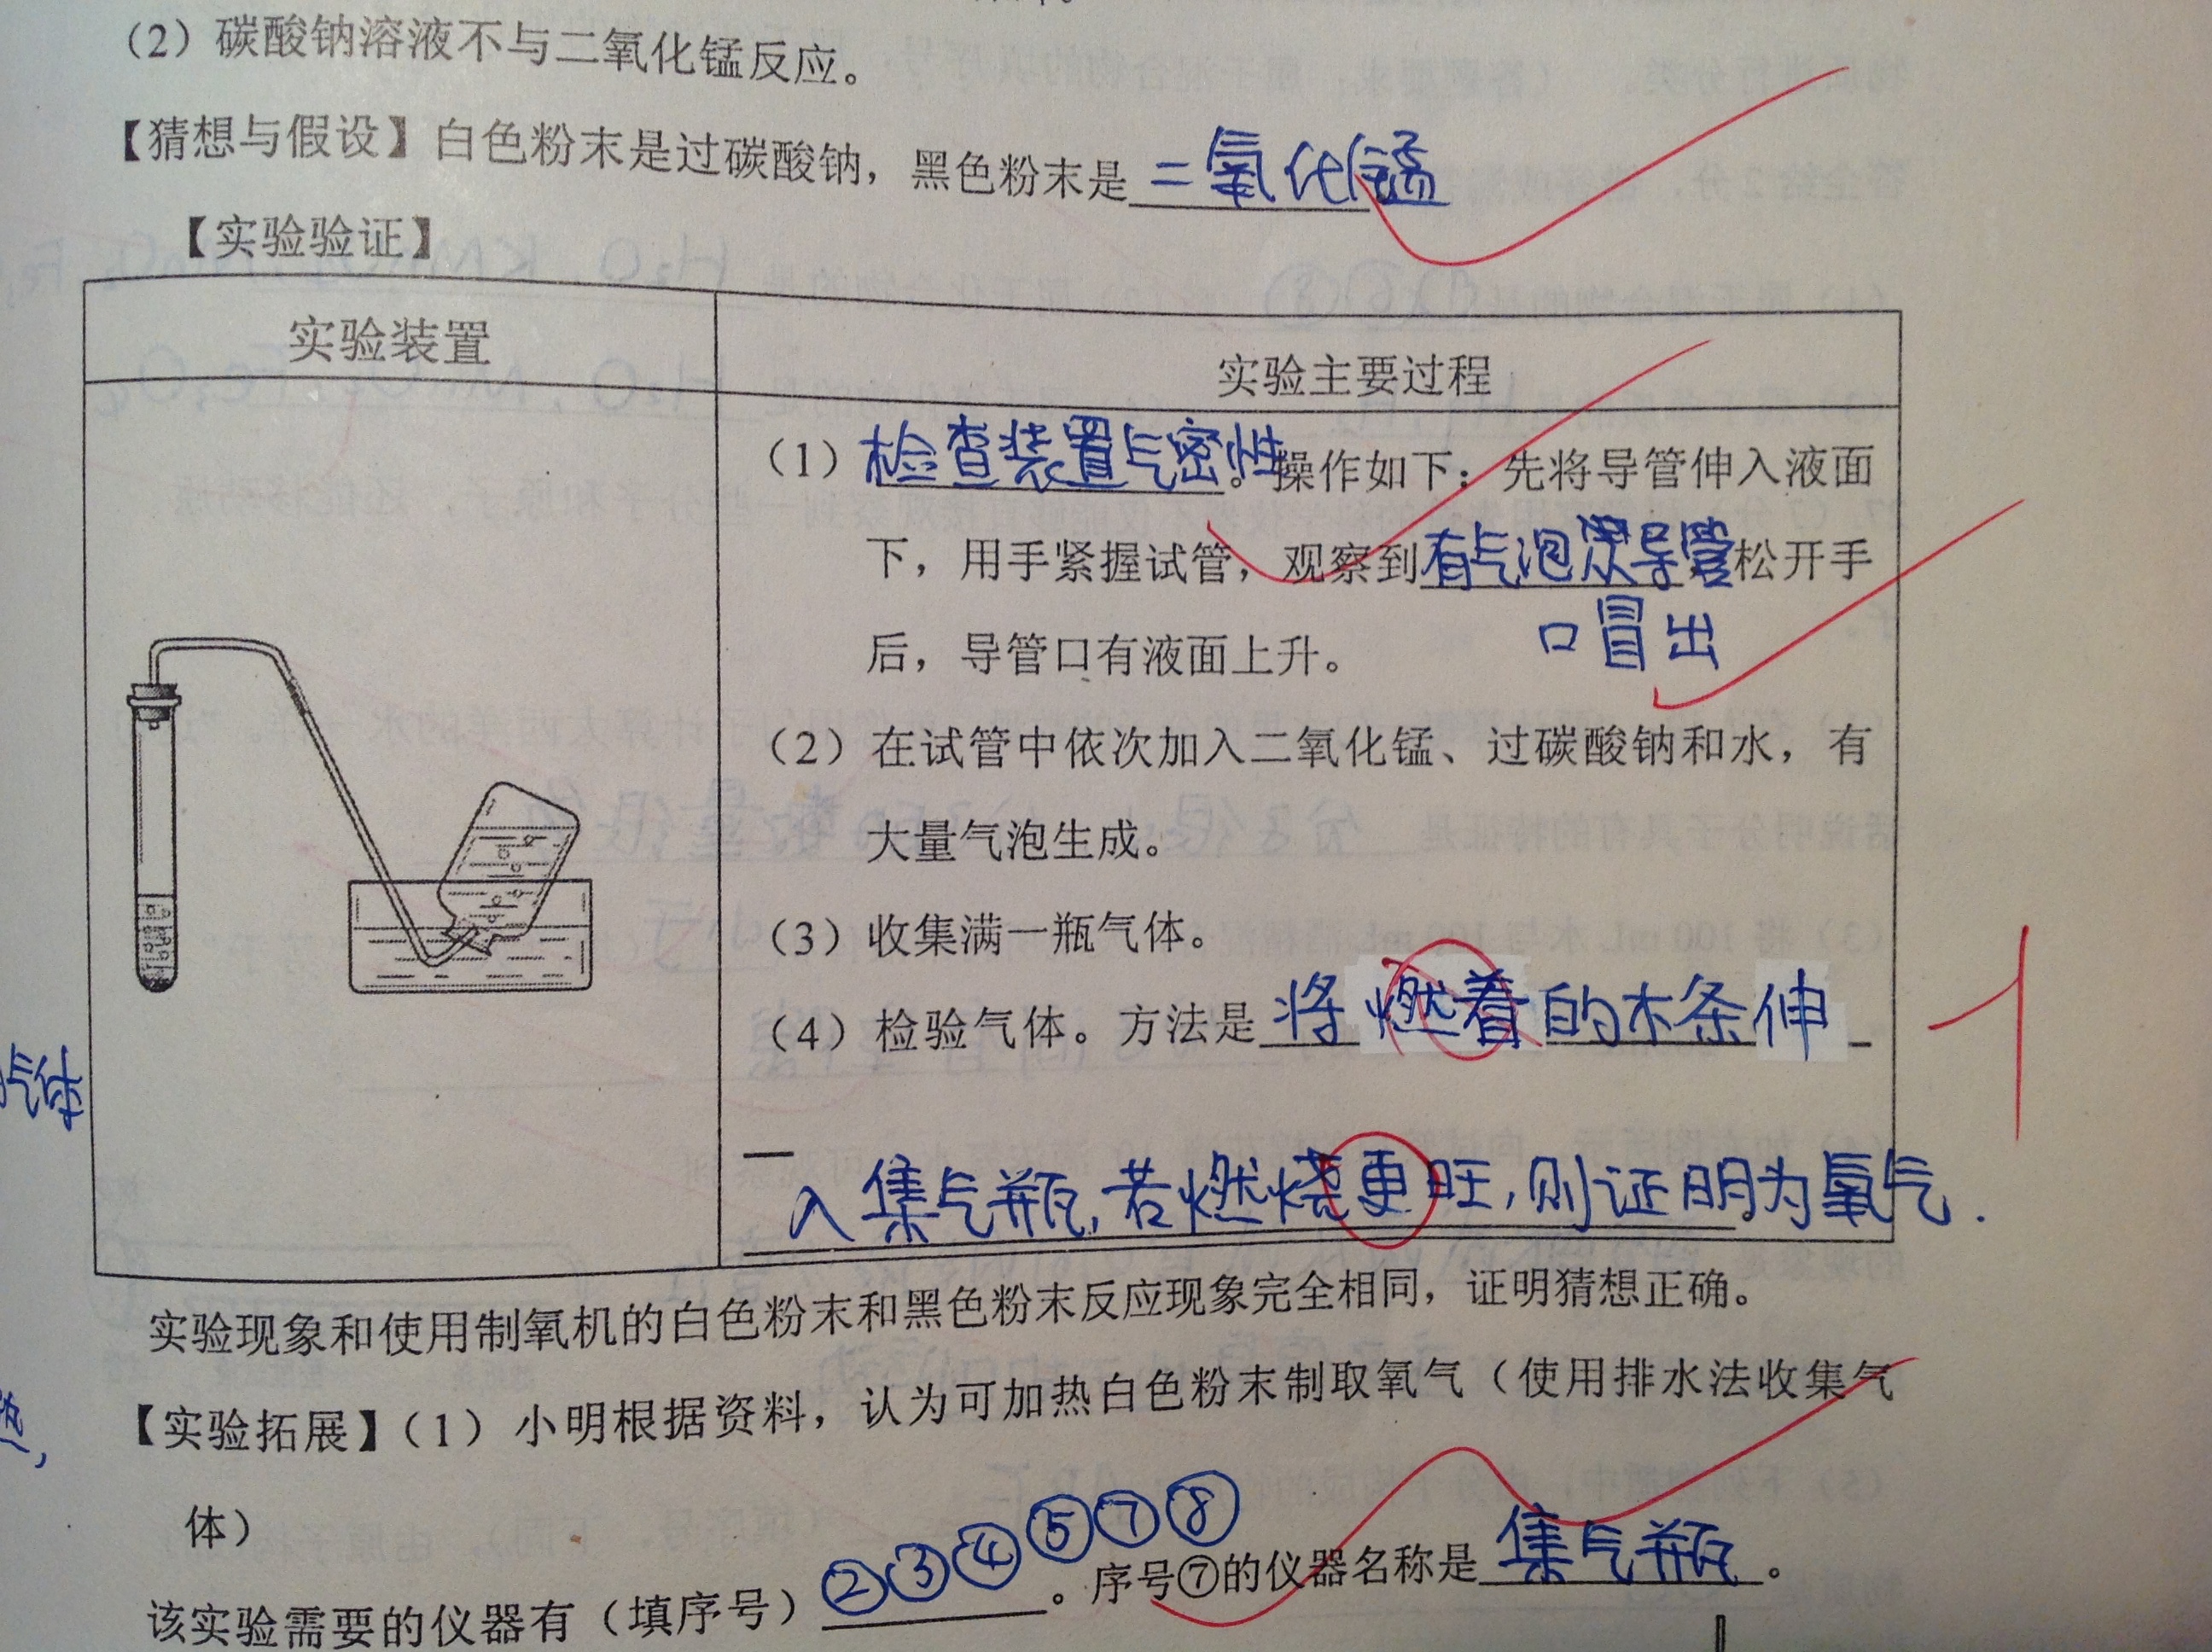 (2)碳酸钠溶液不与二氧化锰反应。
【猜想与假设】白色粉末是过碳酸钠,黑色粉末是二氧化锰
【实验验证】
实验装置
实验主要过程
(1)检查装置气密性。操作如下:先将导管伸入液面
下,用手紧握试管,观察到有气泡从导管松开手
口冒出
后,导管口有液面上升。
(2)在试管中依次加入二氧化锰、过碳酸钠和水,有
大量气泡生成。
(3)收集满一瓶气体。
(4)检验气体。方法是将燃着的木条伸
入集气瓶,若燃烧更旺,则证明为氧气.
气体
-1
实验现象和使用制氧机的白色粉末和黑色粉末反应现象完全相同,证明猜想正确。
【实验拓展】(1)小明根据资料,认为可加热白色粉末制取氧气(使用排水法收集气
体)
该实验需要的仪器有(填序号)②③④⑤⑦⑧。序号⑦的仪器名称是集气瓶。